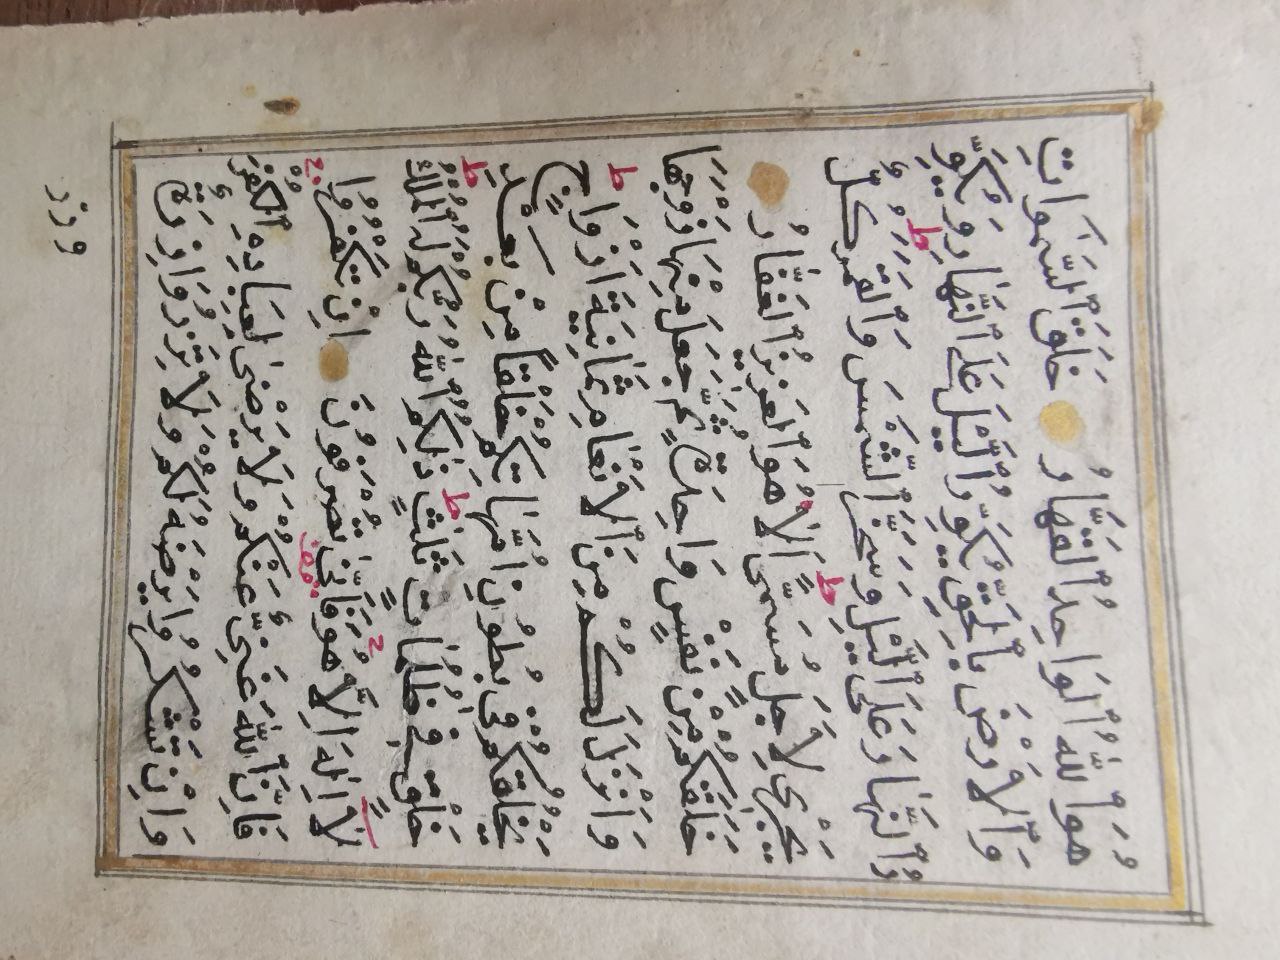 هُوَ ٱللَّهُ ٱلْوَاحِدُ ٱلْقَهَّارُ خَلَقَ ٱلسَّمَوَاتِ
وَٱلْاَرْضَ بِٱلْحَقِّ يُكَوِّرُ ٱلَّيْلَ عَلَى ٱلنَّهَارِ وَيُكَوِّرُ
ٱلنَّهَارَ عَلَى ٱلَّيْلِ وَسَخَّرَ ٱلشَّمْسَ وَٱلْقَمَرَ ط كُلٌّ
يَجْرِى لِاَجَلٍ مُسَمًّى ط اَلَا هُوَ ٱلْعَزِيزُ ٱلْغَفَّارُ
خَلَقَكُمْ مِنْ نَفْسٍ وَاحِدَةٍ ثُمَّ جَعَلَ مِنْهَا زَوْجَهَا
وَاَنْزَلَ لَكُمْ مِنَ ٱلْاَنْعَامِ ثَمَانِيَةَ اَزْوَاجٍ ط
يَخْلُقُكُمْ فِى بُطُونِ اُمَّهَاتِكُمْ خَلْقًا مِنْ بَعْدِ
خَلْقٍ فِى ظُلُمَاتٍ ثَلٰثٍ ط ذٰلِكُمُ ٱللَّهُ رَبُّكُمْ لَهُ ٱلْمُلْكُ ط
لَا اِلٰهَ اِلَّا هُوَ ج فَاَنّٰى تُصْرَفُونَ اِنْ تَكْفُرُوا
فَاِنَّ ٱللَّهَ غَنِىٌّ عَنْكُمْ وَلَا يَرْضٰى لِعِبَادِهِ ٱلْكُفْرَ ج
وَاِنْ تَشْكُرُوا يَرْضَهُ لَكُمْ وَلَا تَزِرُ وَازِرَةٌ
وزر